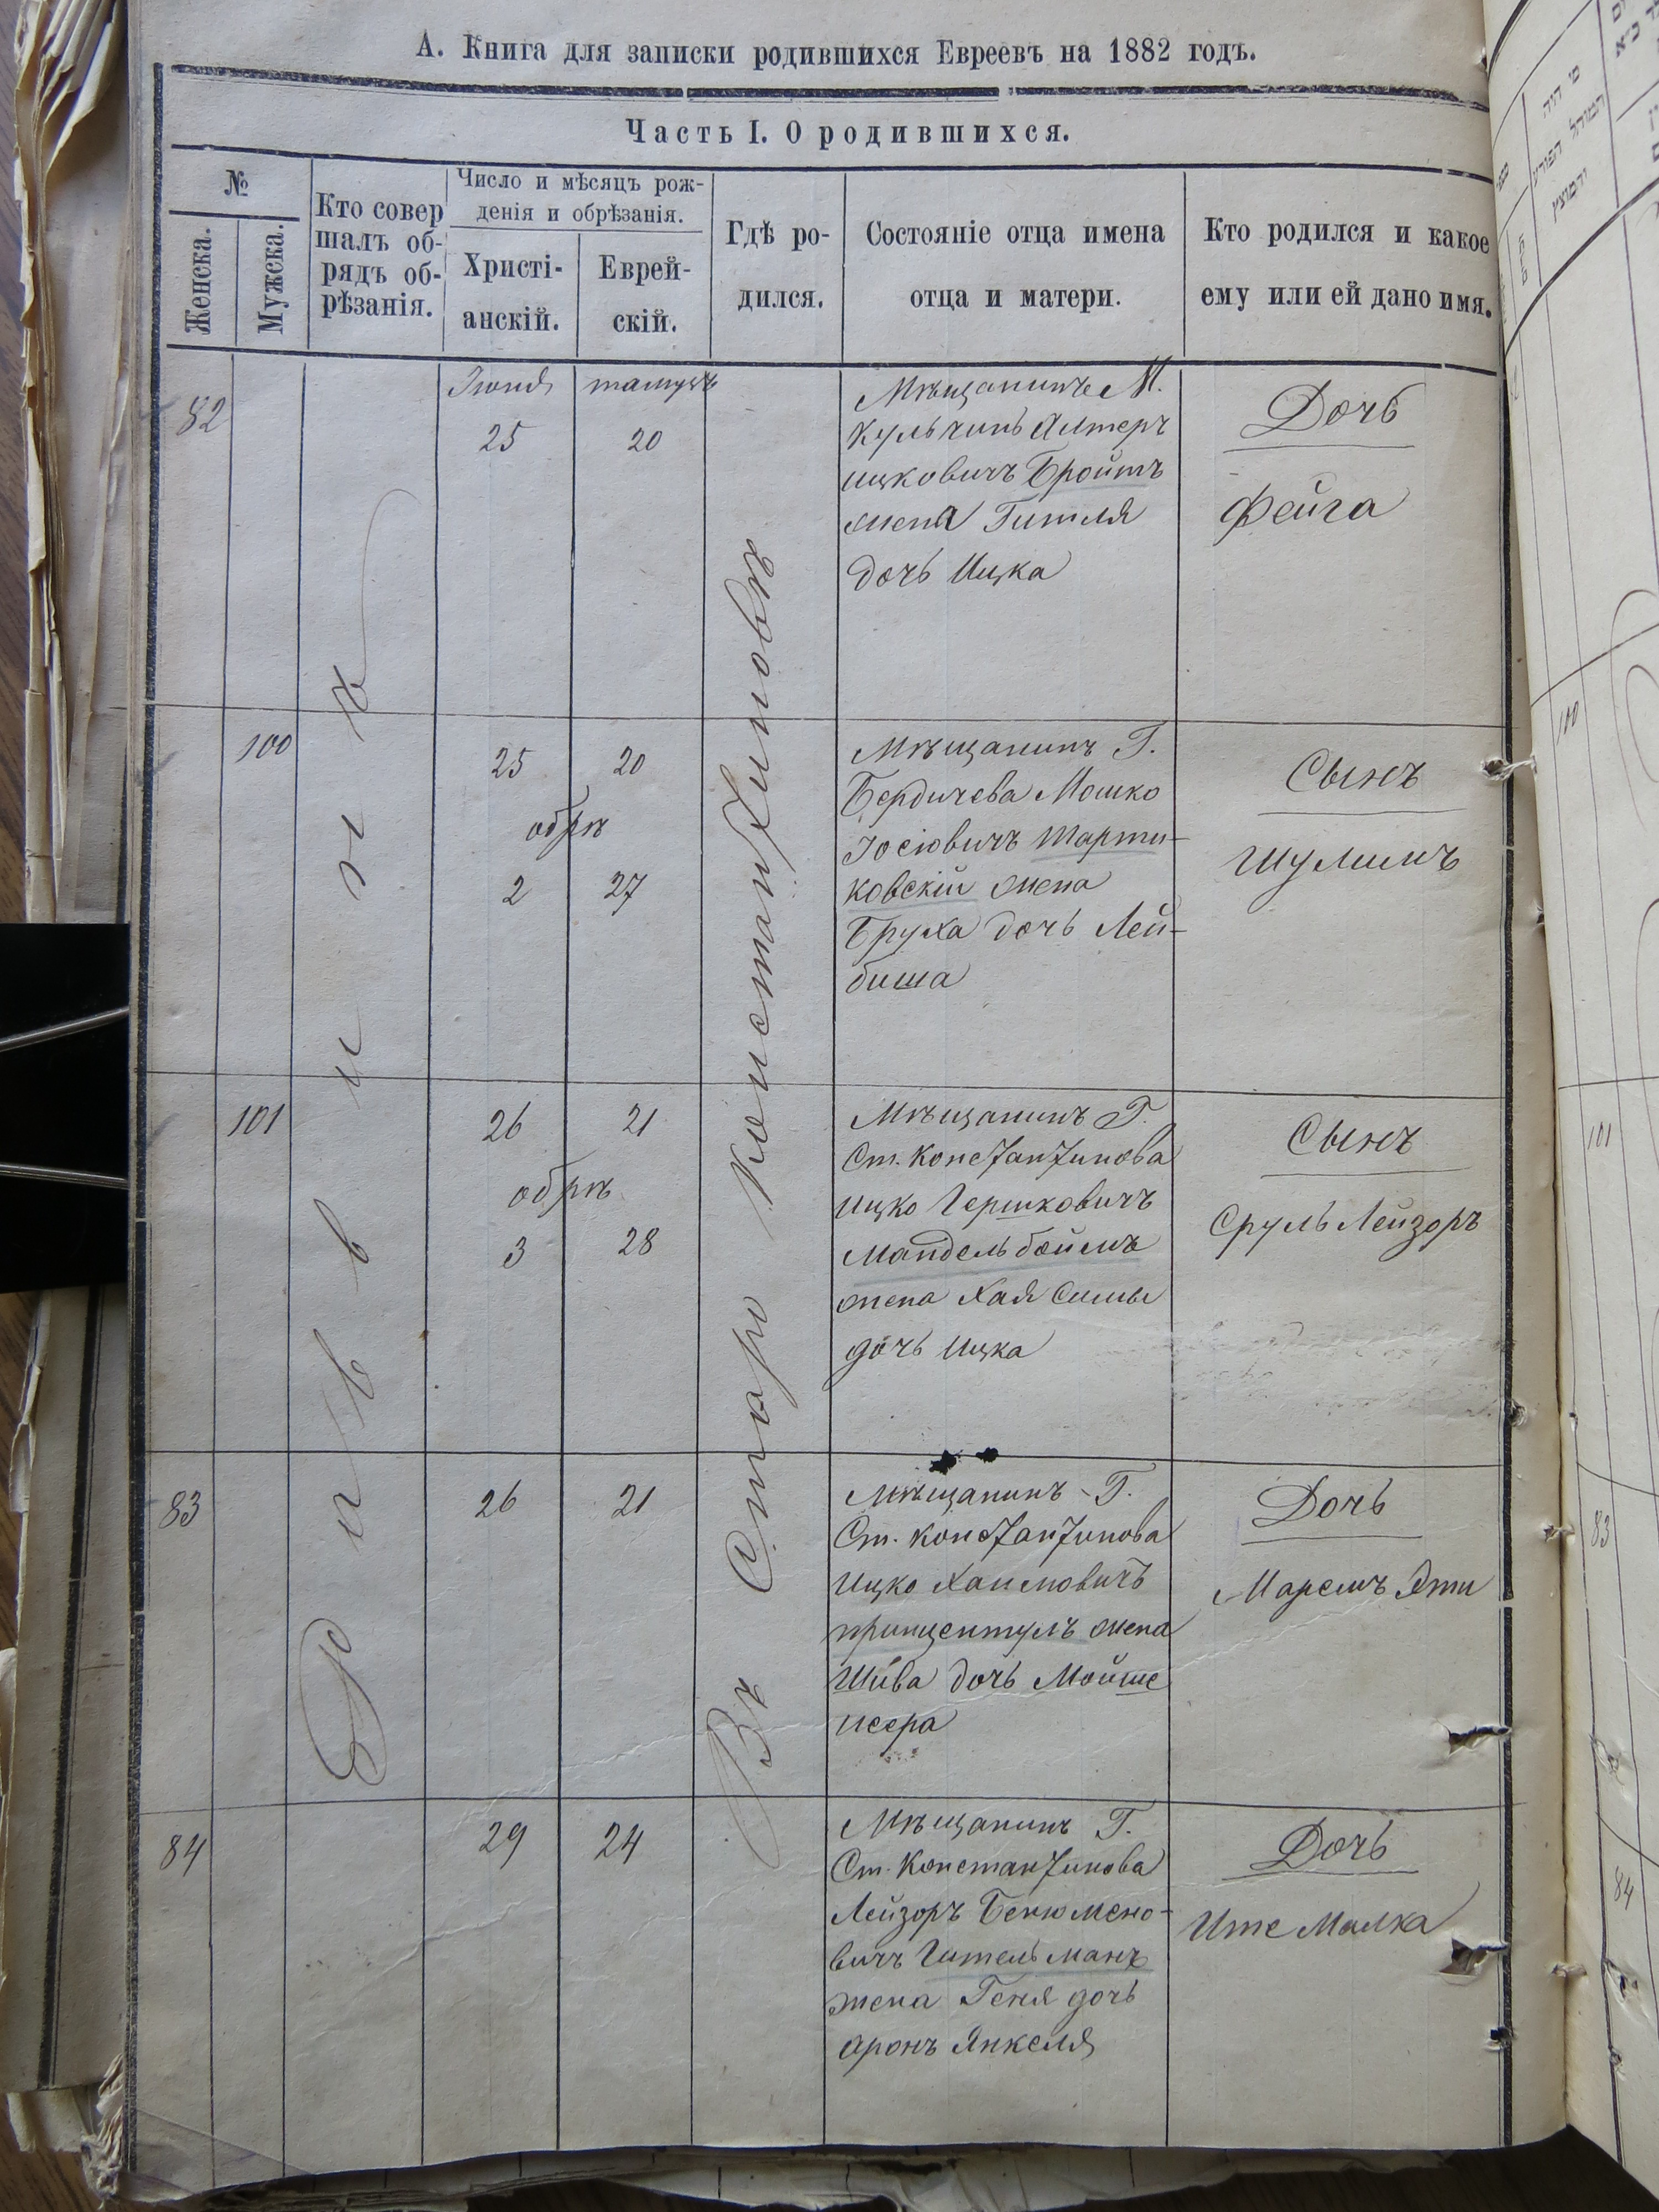 А. Книга для записки родившихся Евреевъ на 1882 годъ.
Часть I. О родившихся.
№
Женска.
Мужска.
Кто совер
шалъ об-
рядъ об-
рѣзанія.
Число и мѣсяцъ рож-
денія и обрѣзанія.
Христі-
анскій.
Еврей-
скій.
Гдѣ ро-
дился.
Состояніе отца имена
отца и матери.
Кто родился и какое
ему или ей дано имя.
Въ Старо Константиновѣ
82
Іюня
25
тамузъ
20
Мѣщанинъ М.
Кульчинъ Алтеръ
Ицковичъ Бройтъ
жена Гитля
дочь Ицка
Дочь
Фейга
100
25
20
обрѣ
2
27
Мѣщанинъ Г.
Бердичева Мошко
Іосіовичъ
ковскій жена
Бруха дочь Лей-
биша
Сынъ
Шулимъ
101
26
21
обрѣ
3
28
Мѣщанинъ Г.
Ст. Константинова
Ицко Гершковичъ
Мандельбоймъ
жена Хая Симы
дочь Ицка
Сынъ
Сруль Лейзоръ
83
26
21
Мѣщанинъ Г.
Ст. Константинова
Ицко Хаимовичъ
принцентулъ жена
Шива дочь Мойше
исера
Дочь
Маремъ Эти
84
29
24
Мѣщанинъ Г.
Ст. Константинова
Лейзоръ Бенюмено-
вичъ Гительманъ
жена Геня дочь
Аронъ Янкеля
Дочь
Ите Малка
100
101
83
84